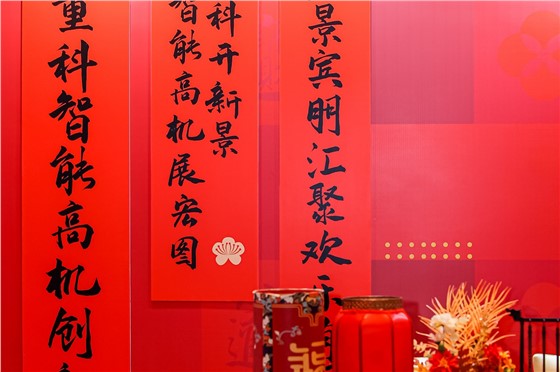 景宾朋汇聚欢
科开新景
智能高机展宏图
重科智能高机创